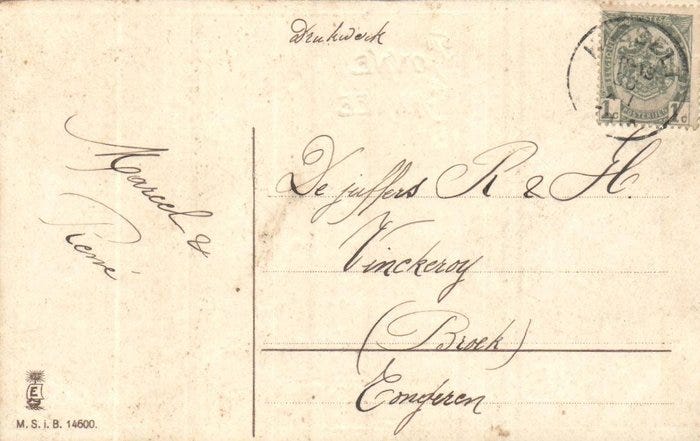 Drukwerk
HASSELT
1c 1c
Marcel &
René
De juffers R & H.
Vinckeroy
(Broek)
Tongeren
E
M. S. i. B. 14600.